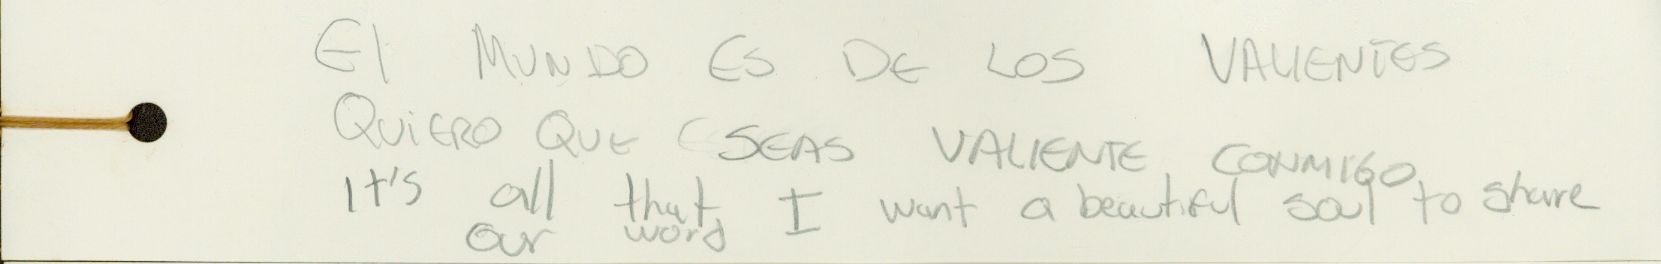 El MUNDO ES DE LOS VALIENTES
QUIERO QUE SEAS VALIENTE CONMIGO
It's all that, I want a beautiful soul to share
our word